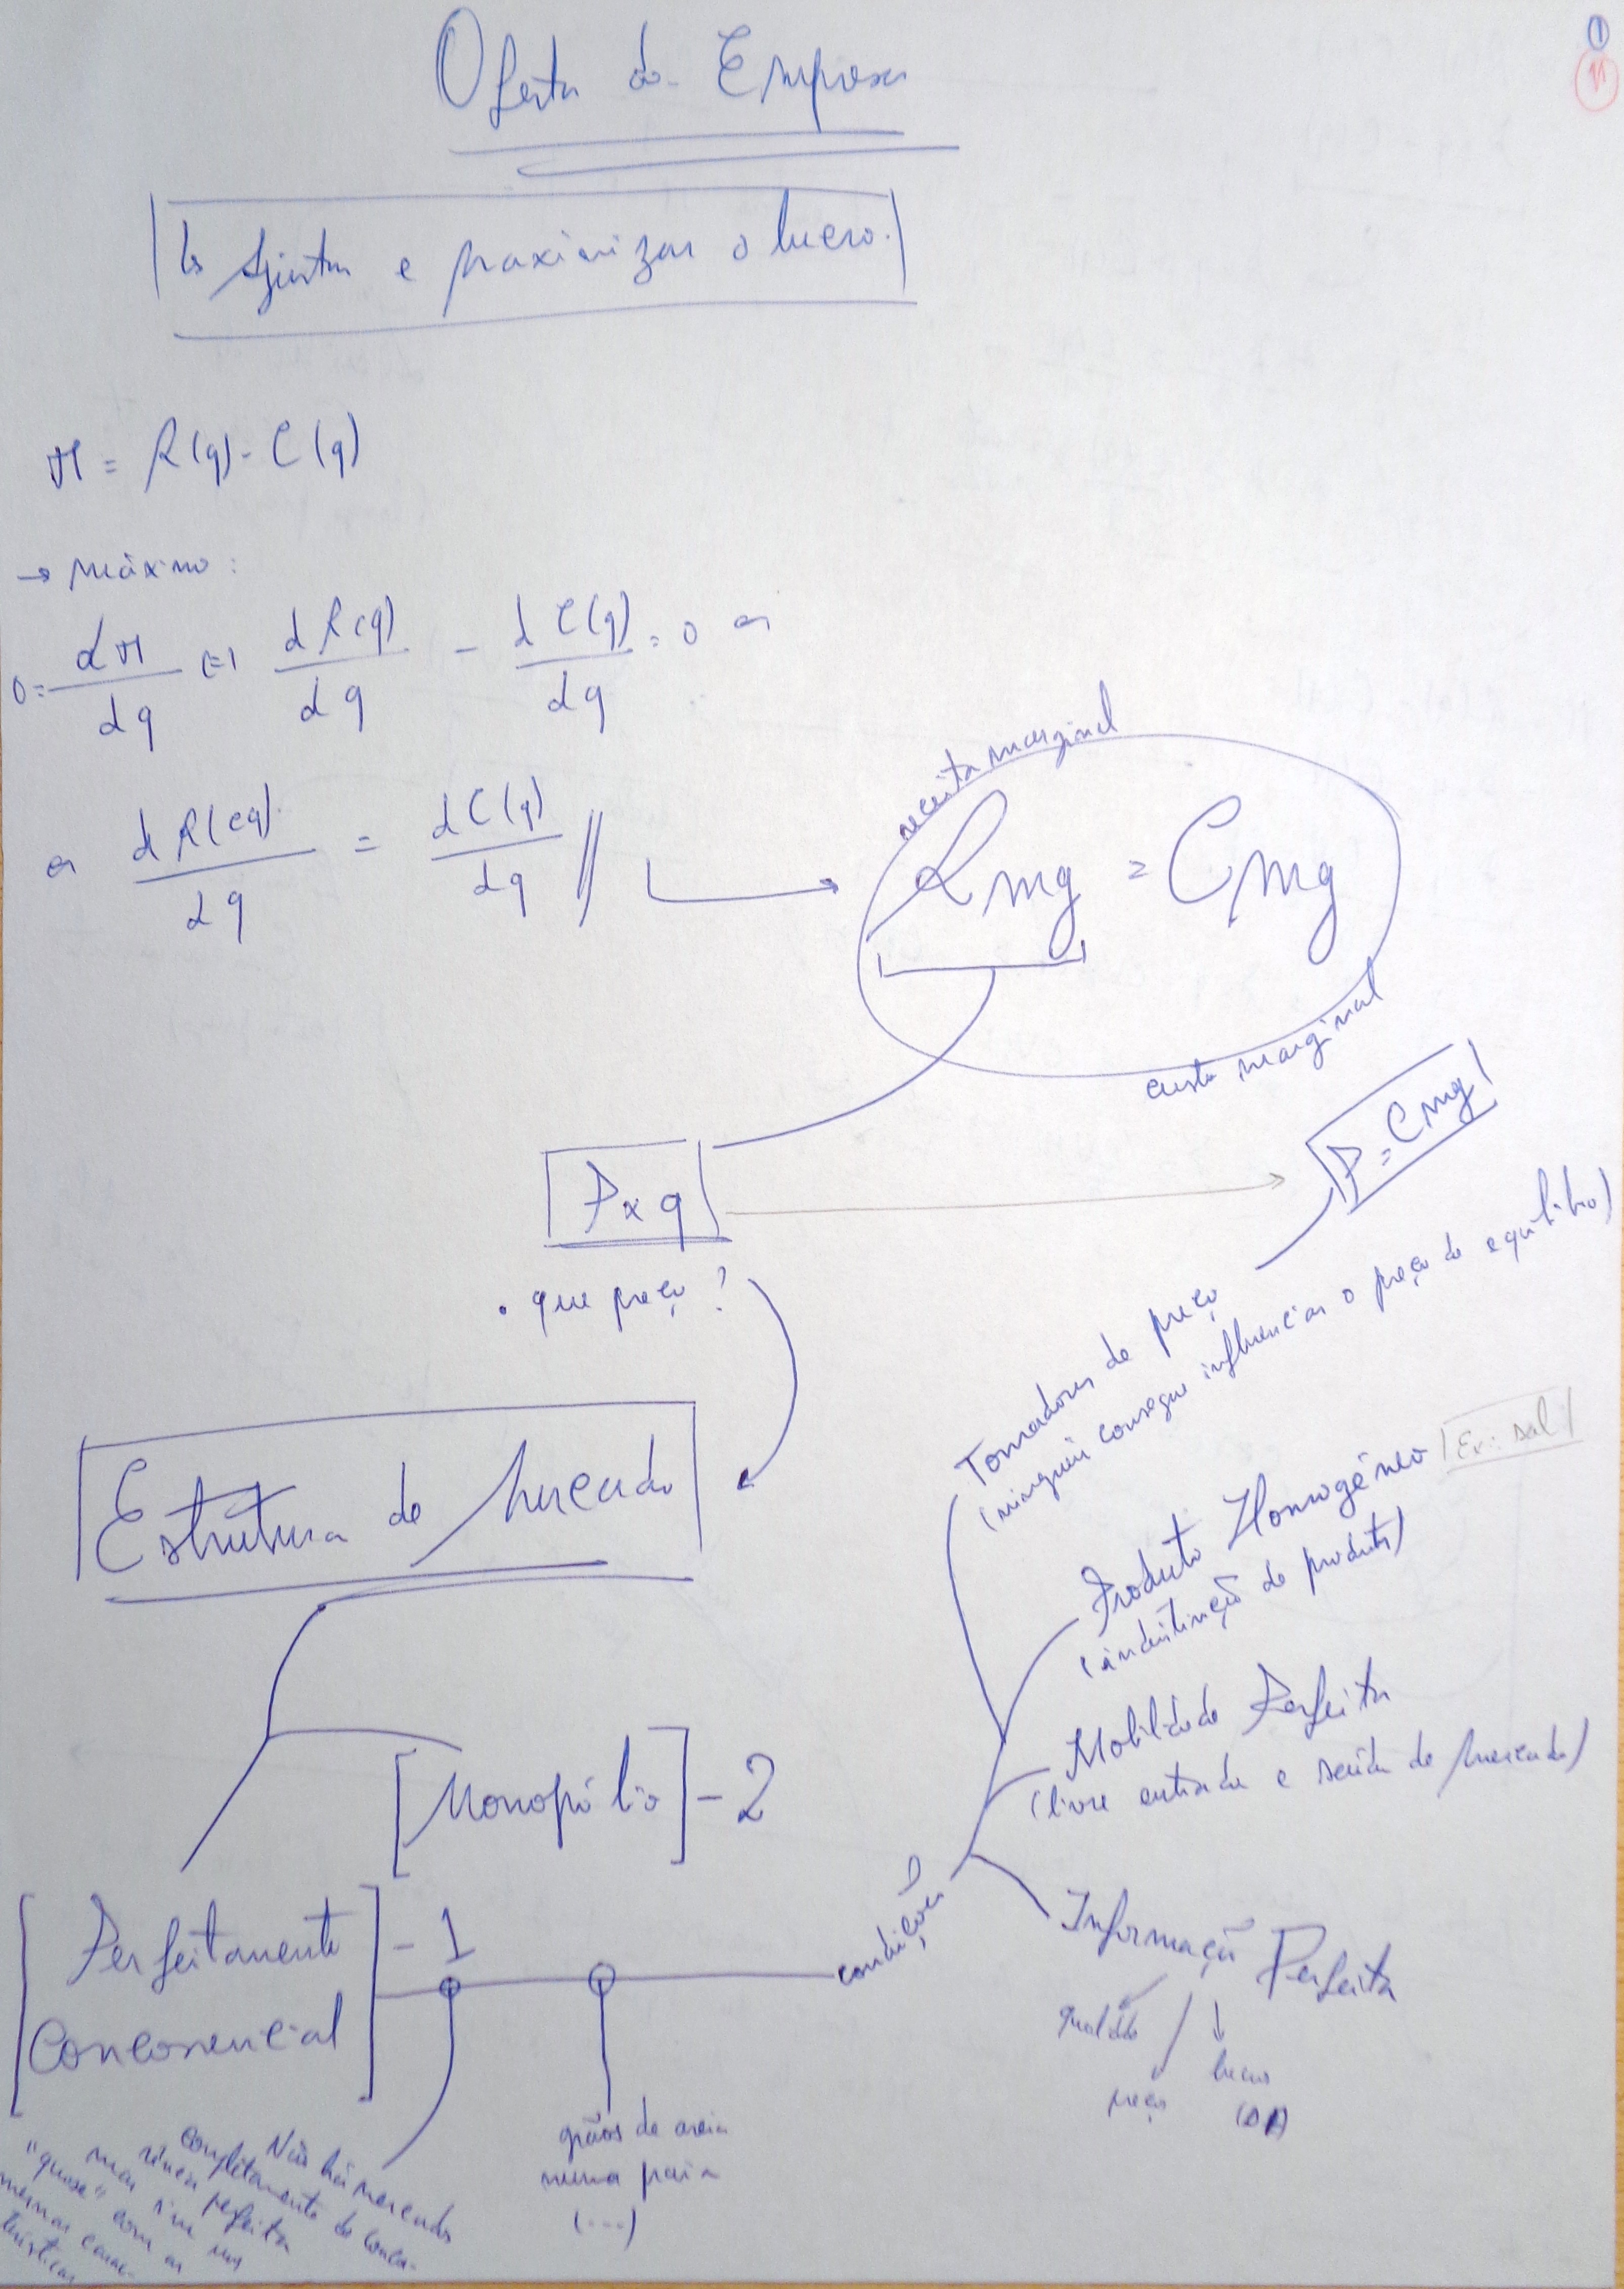 1
Oferta da Empresa
↳ Ajustar e maximizar o lucro.
π = R(q) - C(q)
→ máximo:
0 = dπ/dq ⇔ dR(q)/dq - dC(q)/dq = 0 ⇔
⇔ dR(q)/dq = dC(q)/dq //
receita marginal
Rmg = Cmg
custo marginal
P x q
P = Cmg
. que preço?
Estrutura de Mercado
[Monopólio] - 2
[Perfeitamente
Concorrencial] - 1
Não há mercados
completamente de concor-
rência perfeita
mas sim um
"quase" com as
mesmas carac-
terísticas
grãos de areia
numa praia
(...)
condições
Tomadores de preço
(ninguém consegue influenciar o preço de equilíbrio)
Produto Homogéneo
Ex: sal
(indistinção de produtos)
Mobilidade Perfeita
(livre entrada e saída de mercado)
Informação Perfeita
qualidade
preço
lucro